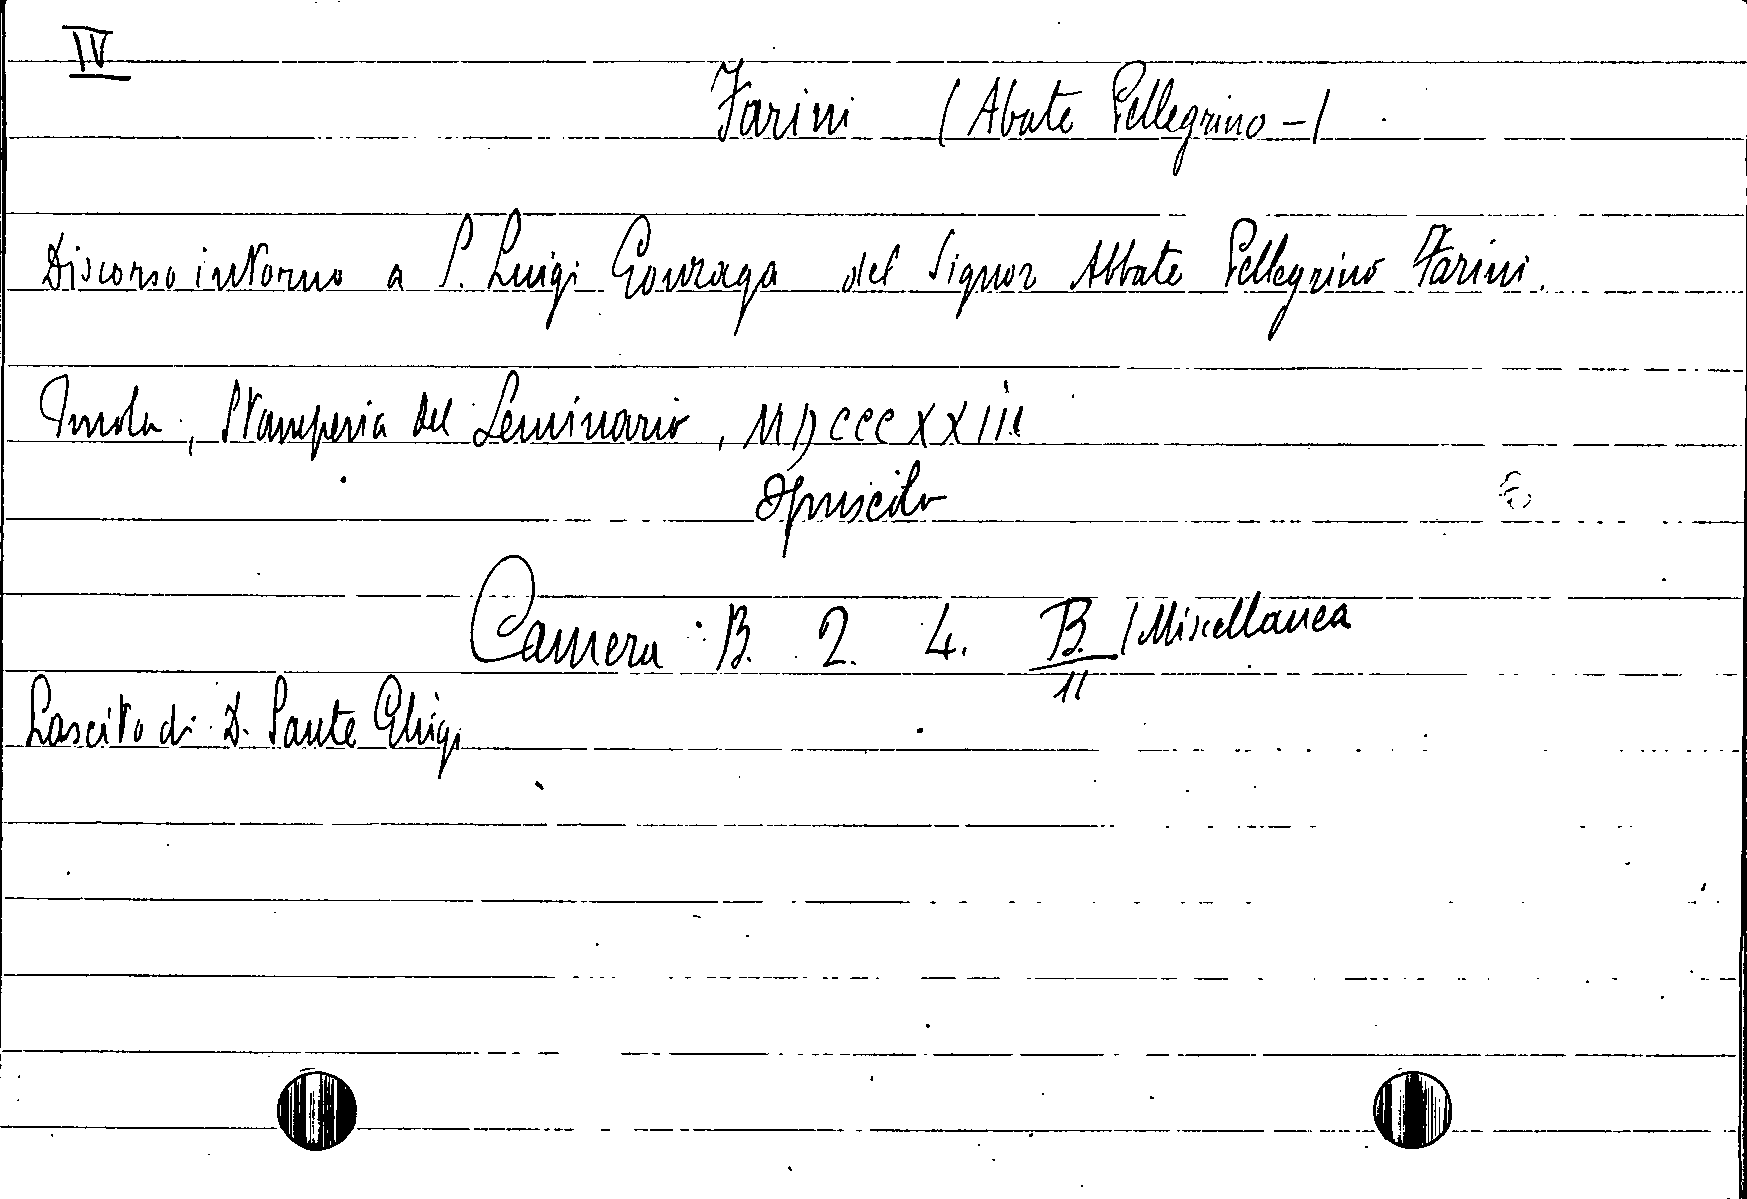 IV
Farini (Abate Pellegrino -)
Discorso intorno a S. Luigi Gonzaga del Signor Abbate Pellegrino Farini.
Imola, Stamperia del Seminario, MDCCCXXIII
Opuscolo
Camera: B. 2. 4. B. / Miscellanea
11
Lascito di D. Sante Ghigi